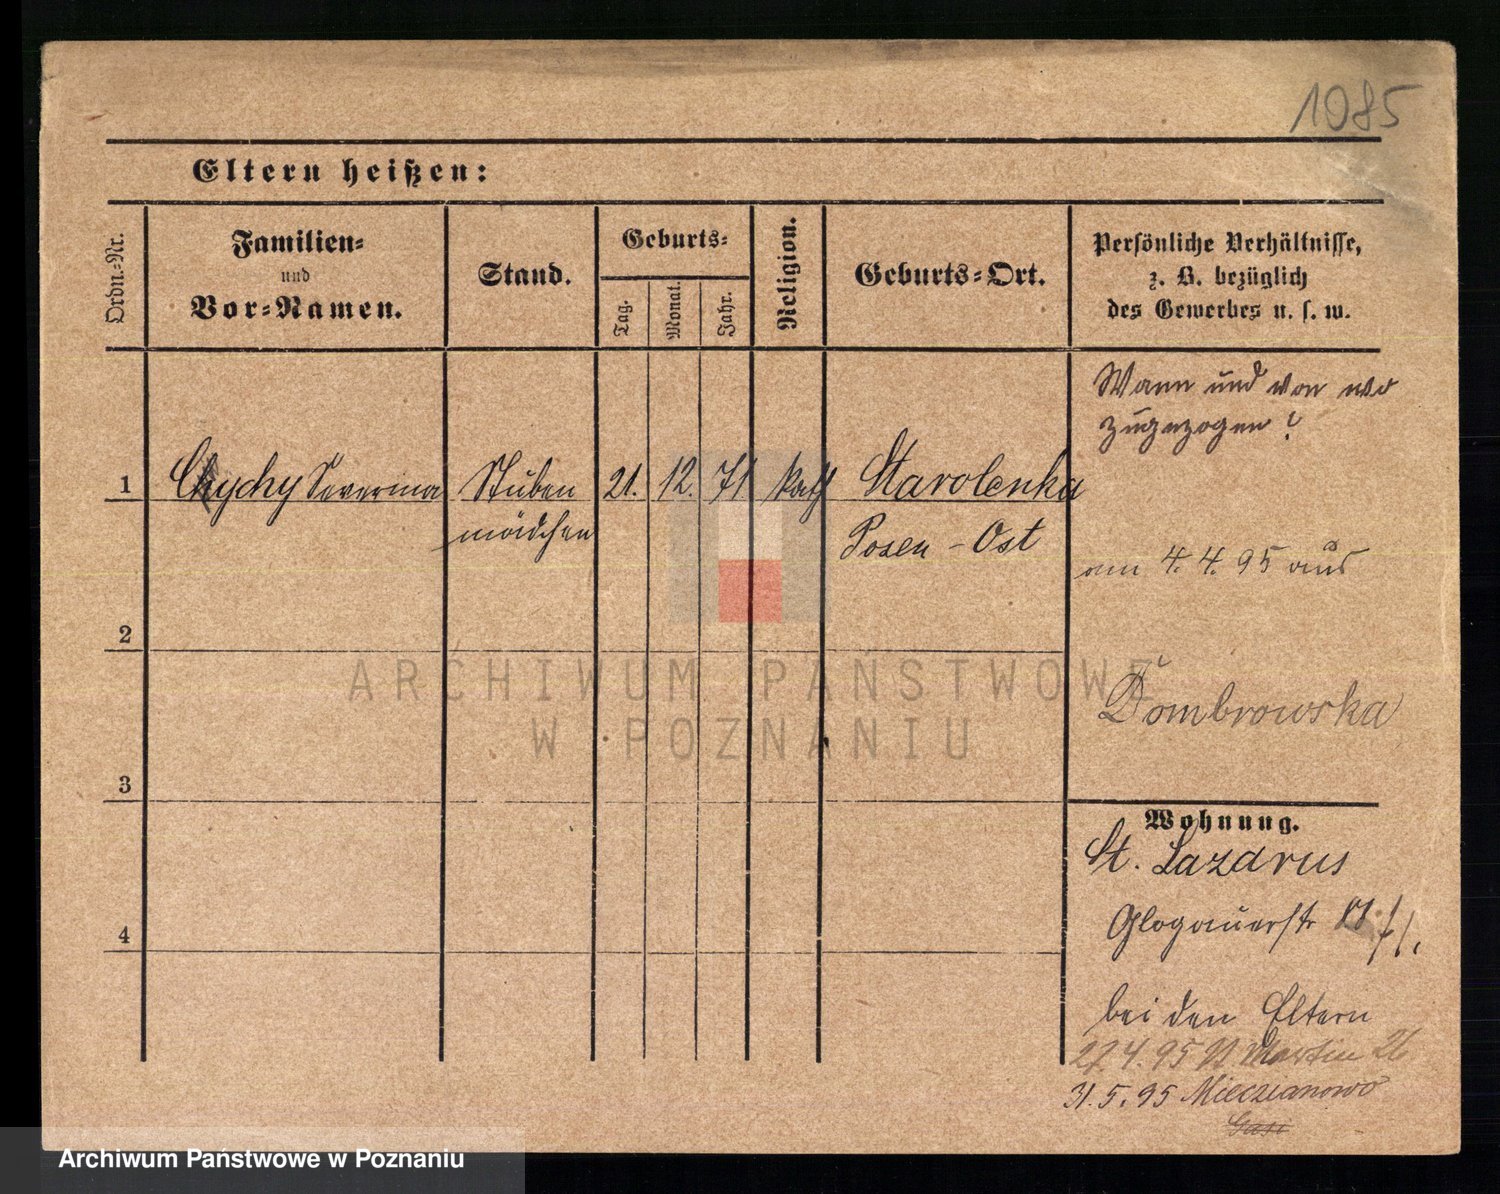 1985
Eltern heißen:
Ordn.-Nr.
Familien-
und
Vor-Namen.
Stand.
Geburts-
Tag.
Monat.
Jahr.
Religion.
Geburts-Ort.
Persönliche Verhältnisse,
z. B. bezüglich
des Gewerbes u. s. w.
Wann und von wo
zugezogen?
1 Chychy Severina Stuben 21. 12. 71 kath Starolenka
mädchen Posen - Ost
am 4. 4. 95 aus
2
Dombrowska
3
Wohnung.
St. Lazarus
Glogauerstr
4
bei den Eltern
27.4.95 St. Martin 26
31.5.95 Mieczianowo
Gasi
ARCHIWUM PAŃSTWOWE
W POZNANIU
Archiwum Państwowe w Poznaniu